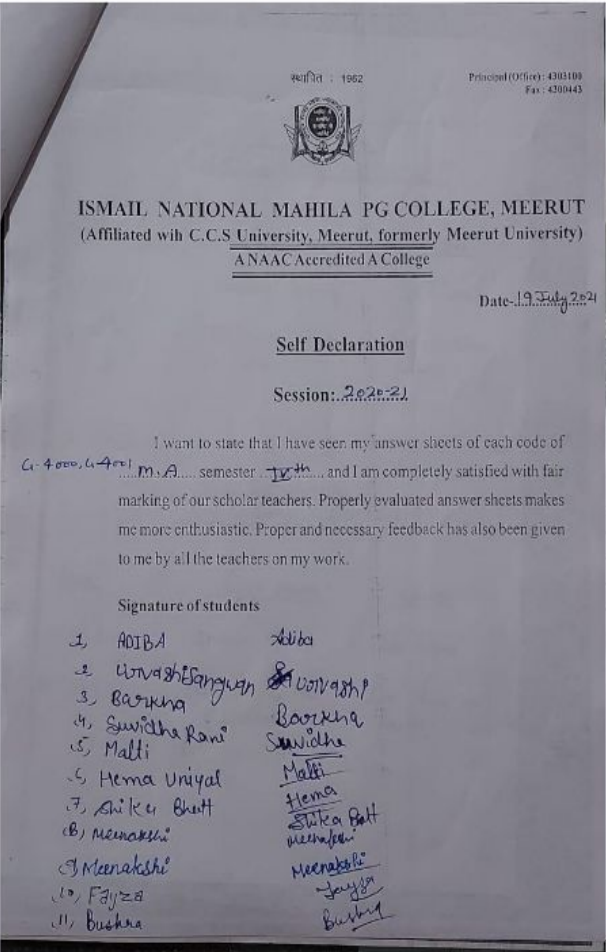 स्थापित : 1962
Principal (Office) : 4303100
Fax : 4300443
ISMAIL NATIONAL MAHILA PG COLLEGE, MEERUT
(Affiliated wih C.C.S University, Meerut, formerly Meerut University)
A NAAC Accredited A College
Date-19 July 2021
Self Declaration
Session: 2020-21
I want to state that I have seen my answer sheets of each code of
G-4000, G-4001 M.A semester IVth, and I am completely satisfied with fair
marking of our scholar teachers. Properly evaluated answer sheets makes
me more enthusiastic. Proper and necessary feedback has also been given
to me by all the teachers on my work.
Signature of students
1, ADIBA Adiba
2 Urvashi Sangwan Urvashi
3, Barkha Barkha
4, Suvidha Rani Suvidha
5, Malti Malti
6, Hema Uniyal Hema
7, Shika Bhatt Shika Batt
8, Meenakshi Meenakshi
9, Meenakshi Meenakshi
10, Fayza Fayza
11, Bushra Bushra